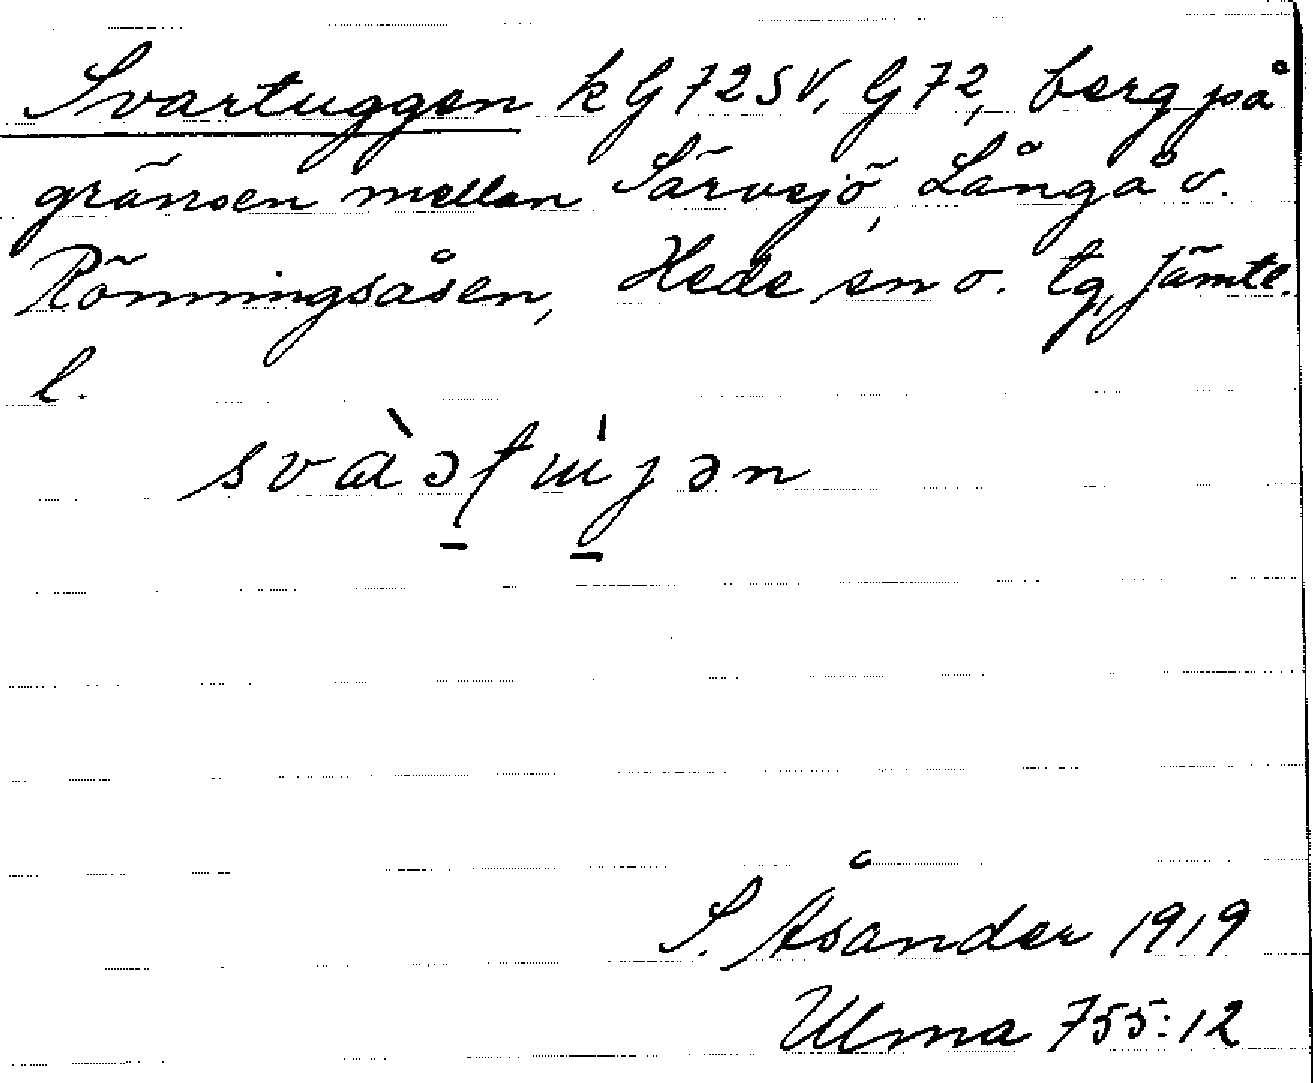 Svartuggen k G 72 SV, G 72, berg på
gränsen mellan Särvsjö, Långå o.
Rönningsåsen, Hede sn o. tg, Jämtl.
l.
S. Åsander 1919
Ulma 755:12